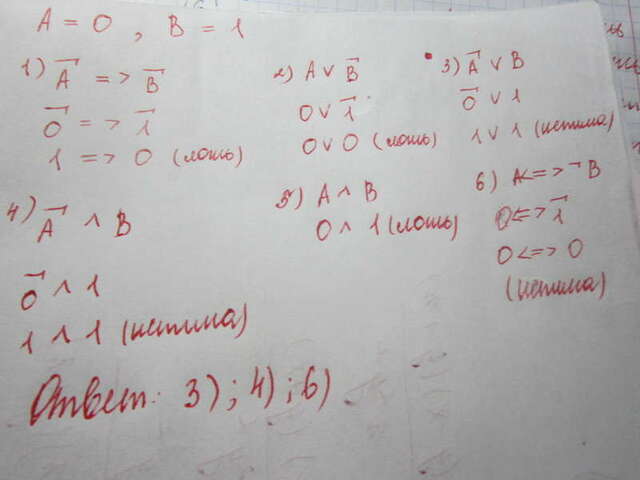 A = 0, B = 1
1) A̅ => B̅
0̅ => 1̅
1 => 0 (ложь)
2) A ∨ B̅
0 ∨ 1̅
0 ∨ 0 (ложь)
3) A̅ ∨ B
0̅ ∨ 1
1 ∨ 1 (истина)
4) A̅ ∧ B
0̅ ∧ 1
1 ∧ 1 (истина)
5) A ∧ B
0 ∧ 1 (ложь)
6) A <=> ¬B
0 <=> 1̅
0 <=> 0
(истина)
Ответ: 3); 4); 6)